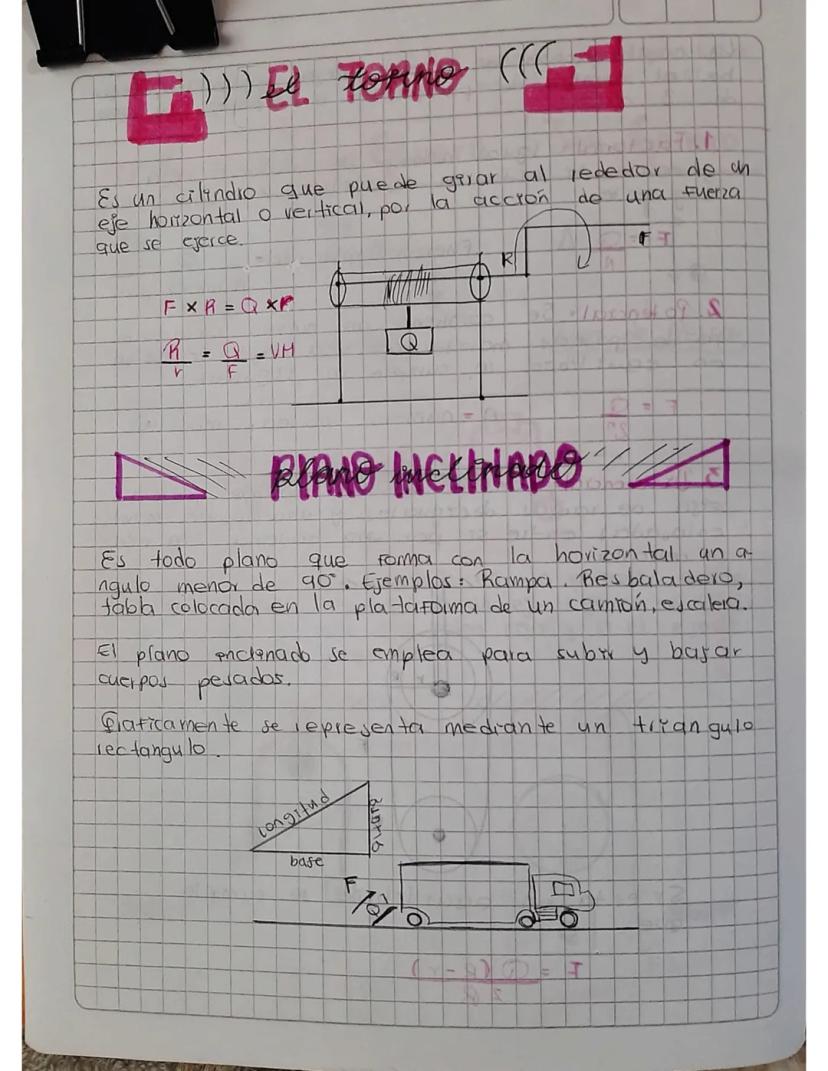 EL TORNO
el torno
Es un cilindro que puede girar al rededor de un
eje horizontal o vertical, por la acción de una fuerza
que se ejerce.
R F
F x R = Q x r
R/r = Q/F = VM
Q
PLANO INCLINADO
plano inclinado
Es todo plano que forma con la horizontal un a-
ngulo menor de 90°. Ejemplos: Rampa. Resbaladero,
tabla colocada en la plataforma de un camión, escalera.
El plano enclenado se emplea para subir y bajar
cuerpos pesados.
Graficamente se representa mediante un triangulo
rectangulo.
longitud
altura
base
F
Q